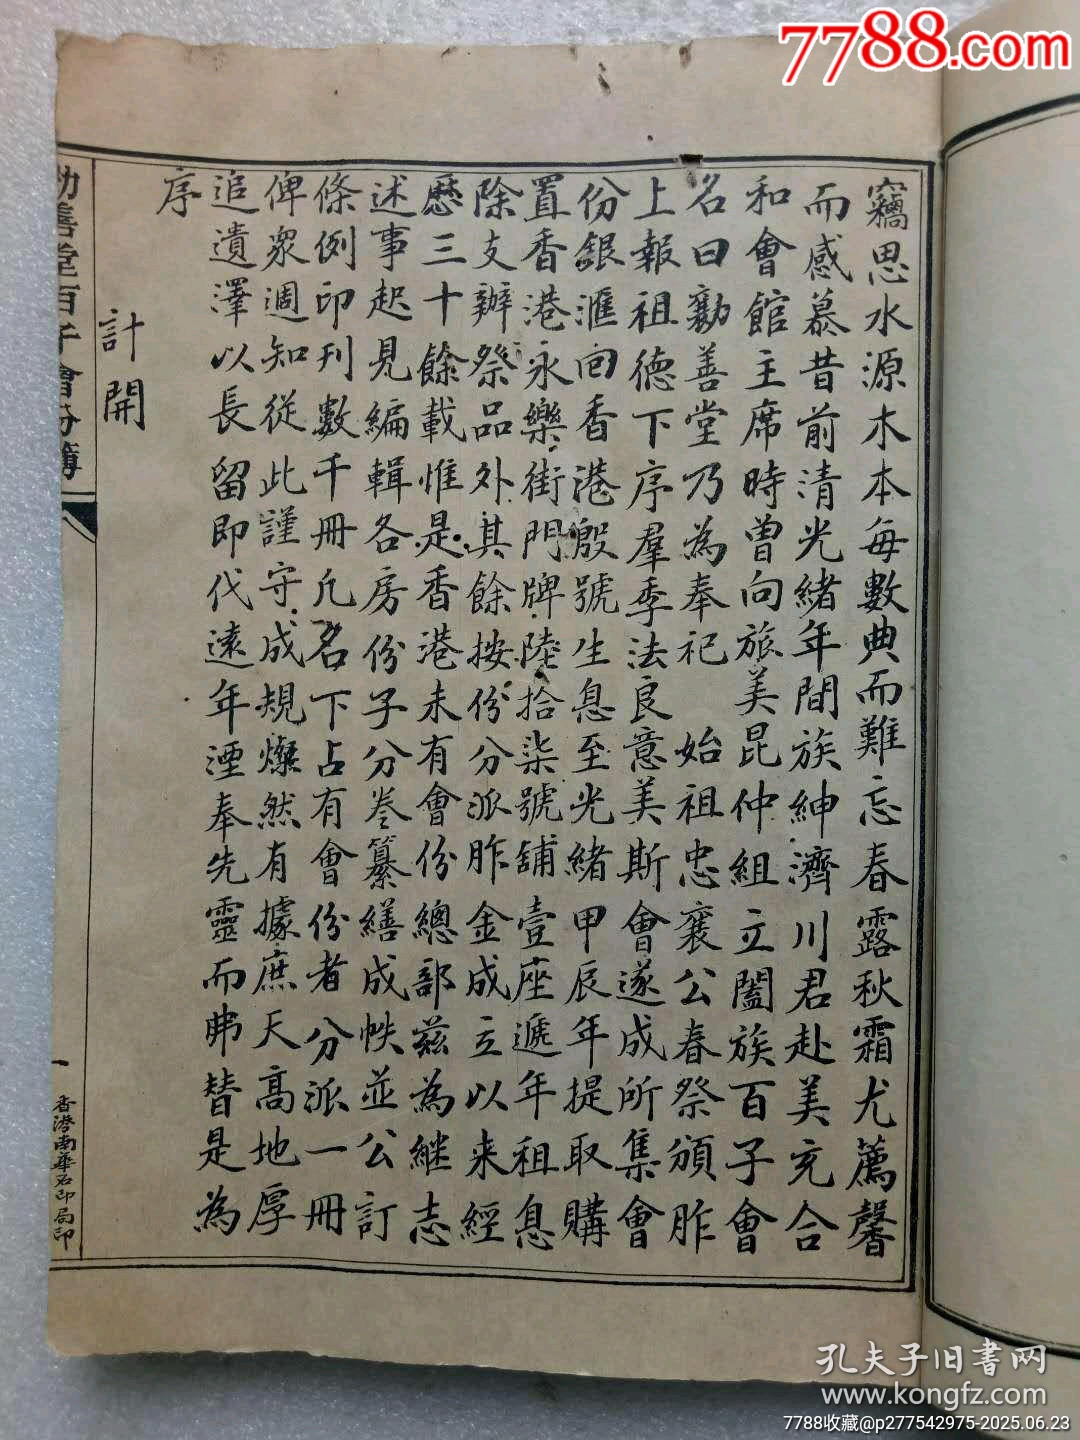 7788.com
竊思水源木本每數典而難忘春露秋霜尤薦馨
而感慕昔前清光緒年間族紳濟川君赴美充合
和會館主席時曾向旅美昆仲組立闔族百子會
名曰勸善堂乃為奉祀 始祖忠襄公春祭頒胙
上報祖德下序羣季法良意美斯會遂成所集會
份銀滙回香港殷號生息至光緒甲辰年提取購
置香港永樂街門牌陸拾柒號舖壹座遞年租息
除支辦祭品外其餘按份分派胙金成立以來經
歷三十餘載惟是香港未有會份總部茲為継志
述事起見編輯各房份子分卷纂繕成帙並公訂
條例印刊數千冊凡名下占有會份者分派一冊
俾眾週知從此謹守成規燦然有據庶天高地厚
追遺澤以長留即代遠年湮奉先靈而弗替是為
序
計開
勸善堂百子會份簿
一
香港南華石印局印
孔夫子旧書网
www.kongfz.com
7788收藏@p277542975-2025.06.23